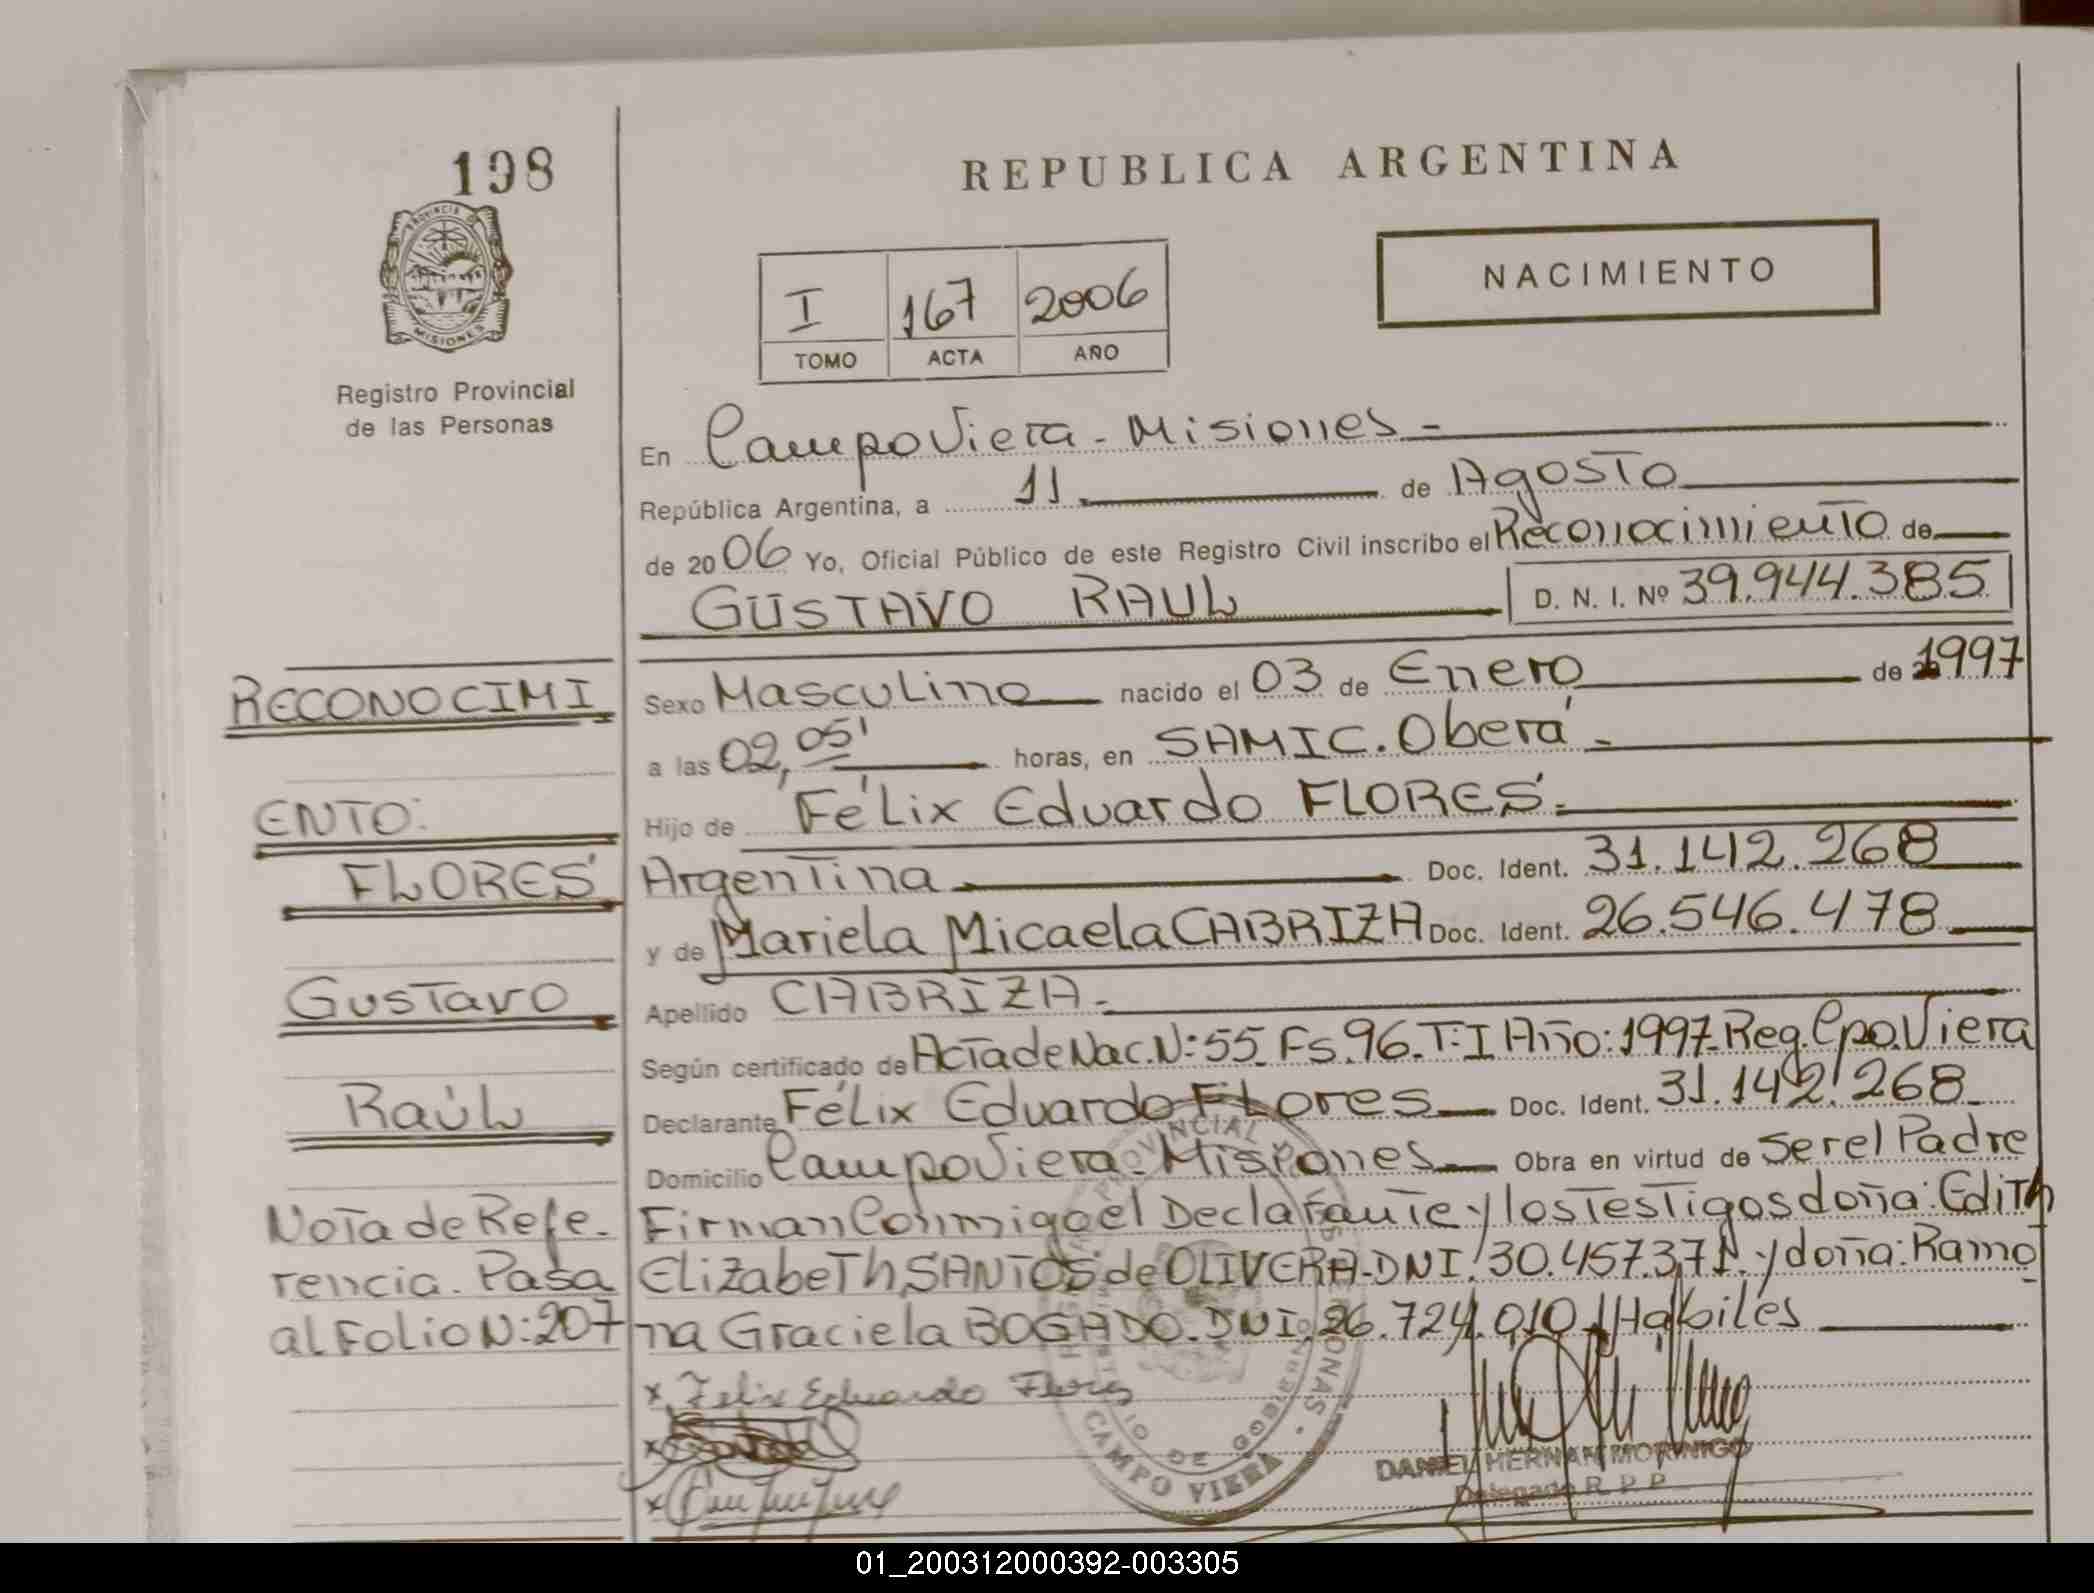 198
REPUBLICA ARGENTINA
PROVINCIA DE
MISIONES
NACIMIENTO
I 167 2006
TOMO ACTA AÑO
Registro Provincial
de las Personas
En Campo Viera - Misiones -
República Argentina, a 11 de Agosto
de 2006 Yo, Oficial Público de este Registro Civil inscribo el Reconocimiento de
GUSTAVO RAUL D. N. I. Nº 39.944.385
RECONOCIMI
ENTO:
FLORES
Gustavo
Raúl
Nota de Refe-
rencia. Pasa
al Folio N: 207
Sexo Masculino nacido el 03 de Enero de 1997
a las 02,05' horas, en SAMIC. Oberá -
Hijo de Félix Eduardo FLORES.-
Argentina Doc. Ident. 31.142.268
y de Mariela Micaela CABRIZA Doc. Ident. 26.546.478
Apellido CABRIZA.-
Según certificado de Acta de Nac. N: 55 Fs. 96. T: I Año: 1997. Reg. Cpo. Viera
Declarante Félix Eduardo Flores Doc. Ident. 31.142.268
Domicilio Campo Viera - Misiones Obra en virtud de Ser el Padre
Firman Conmigo el Declarante y los Testigos doña: Edith
Elizabeth SANTOS de OLIVERA - DNI. 30.457.371. y doña: Ramo
na Graciela BOGADO. DNI. 26.724.010 Habiles
x Felix Eduardo Flores
x
x
CAMPO VIERA
DANIEL HERNAN MORINIGO
Delegado R. P. P.
01_200312000392-003305